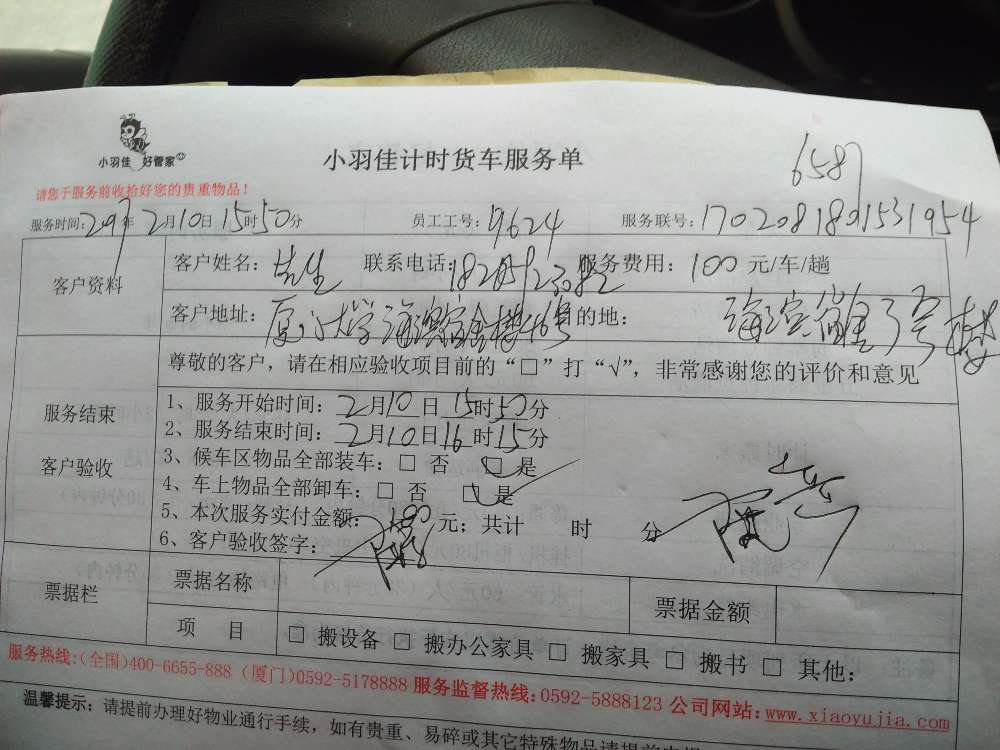 小羽佳 好管家
小羽佳计时货车服务单
6587
请您于服务前收拾好您的贵重物品！
服务时间: 2017年2月10日15时50分 员工工号: 19624 服务联号: 1702081801531954
客户资料
客户姓名: 先生 联系电话: 服务费用: 100 元/车/趟
客户地址: 厦门大学海滨宿舍楼 目的地: 海滨 号楼
尊敬的客户，请在相应验收项目前的“□”打“√”，非常感谢您的评价和意见
服务结束
客户验收
1、服务开始时间: 2月10日15时50分
2、服务结束时间: 2月10日16时15分
3、候车区物品全部装车: □ 否 □ 是
4、车上物品全部卸车: □ 否 □ 是
5、本次服务实付金额: 100元; 共计 时 分
6、客户验收签字:
票据栏
票据名称 票据金额
项 目 □ 搬设备 □ 搬办公家具 □ 搬家具 □ 搬书 □ 其他:
服务热线:(全国)400-6655-888 (厦门)0592-5178888 服务监督热线:0592-5888123 公司网站:www.xiaoyujia.com
温馨提示: 请提前办理好物业通行手续，如有贵重、易碎或其它特殊物品请提前